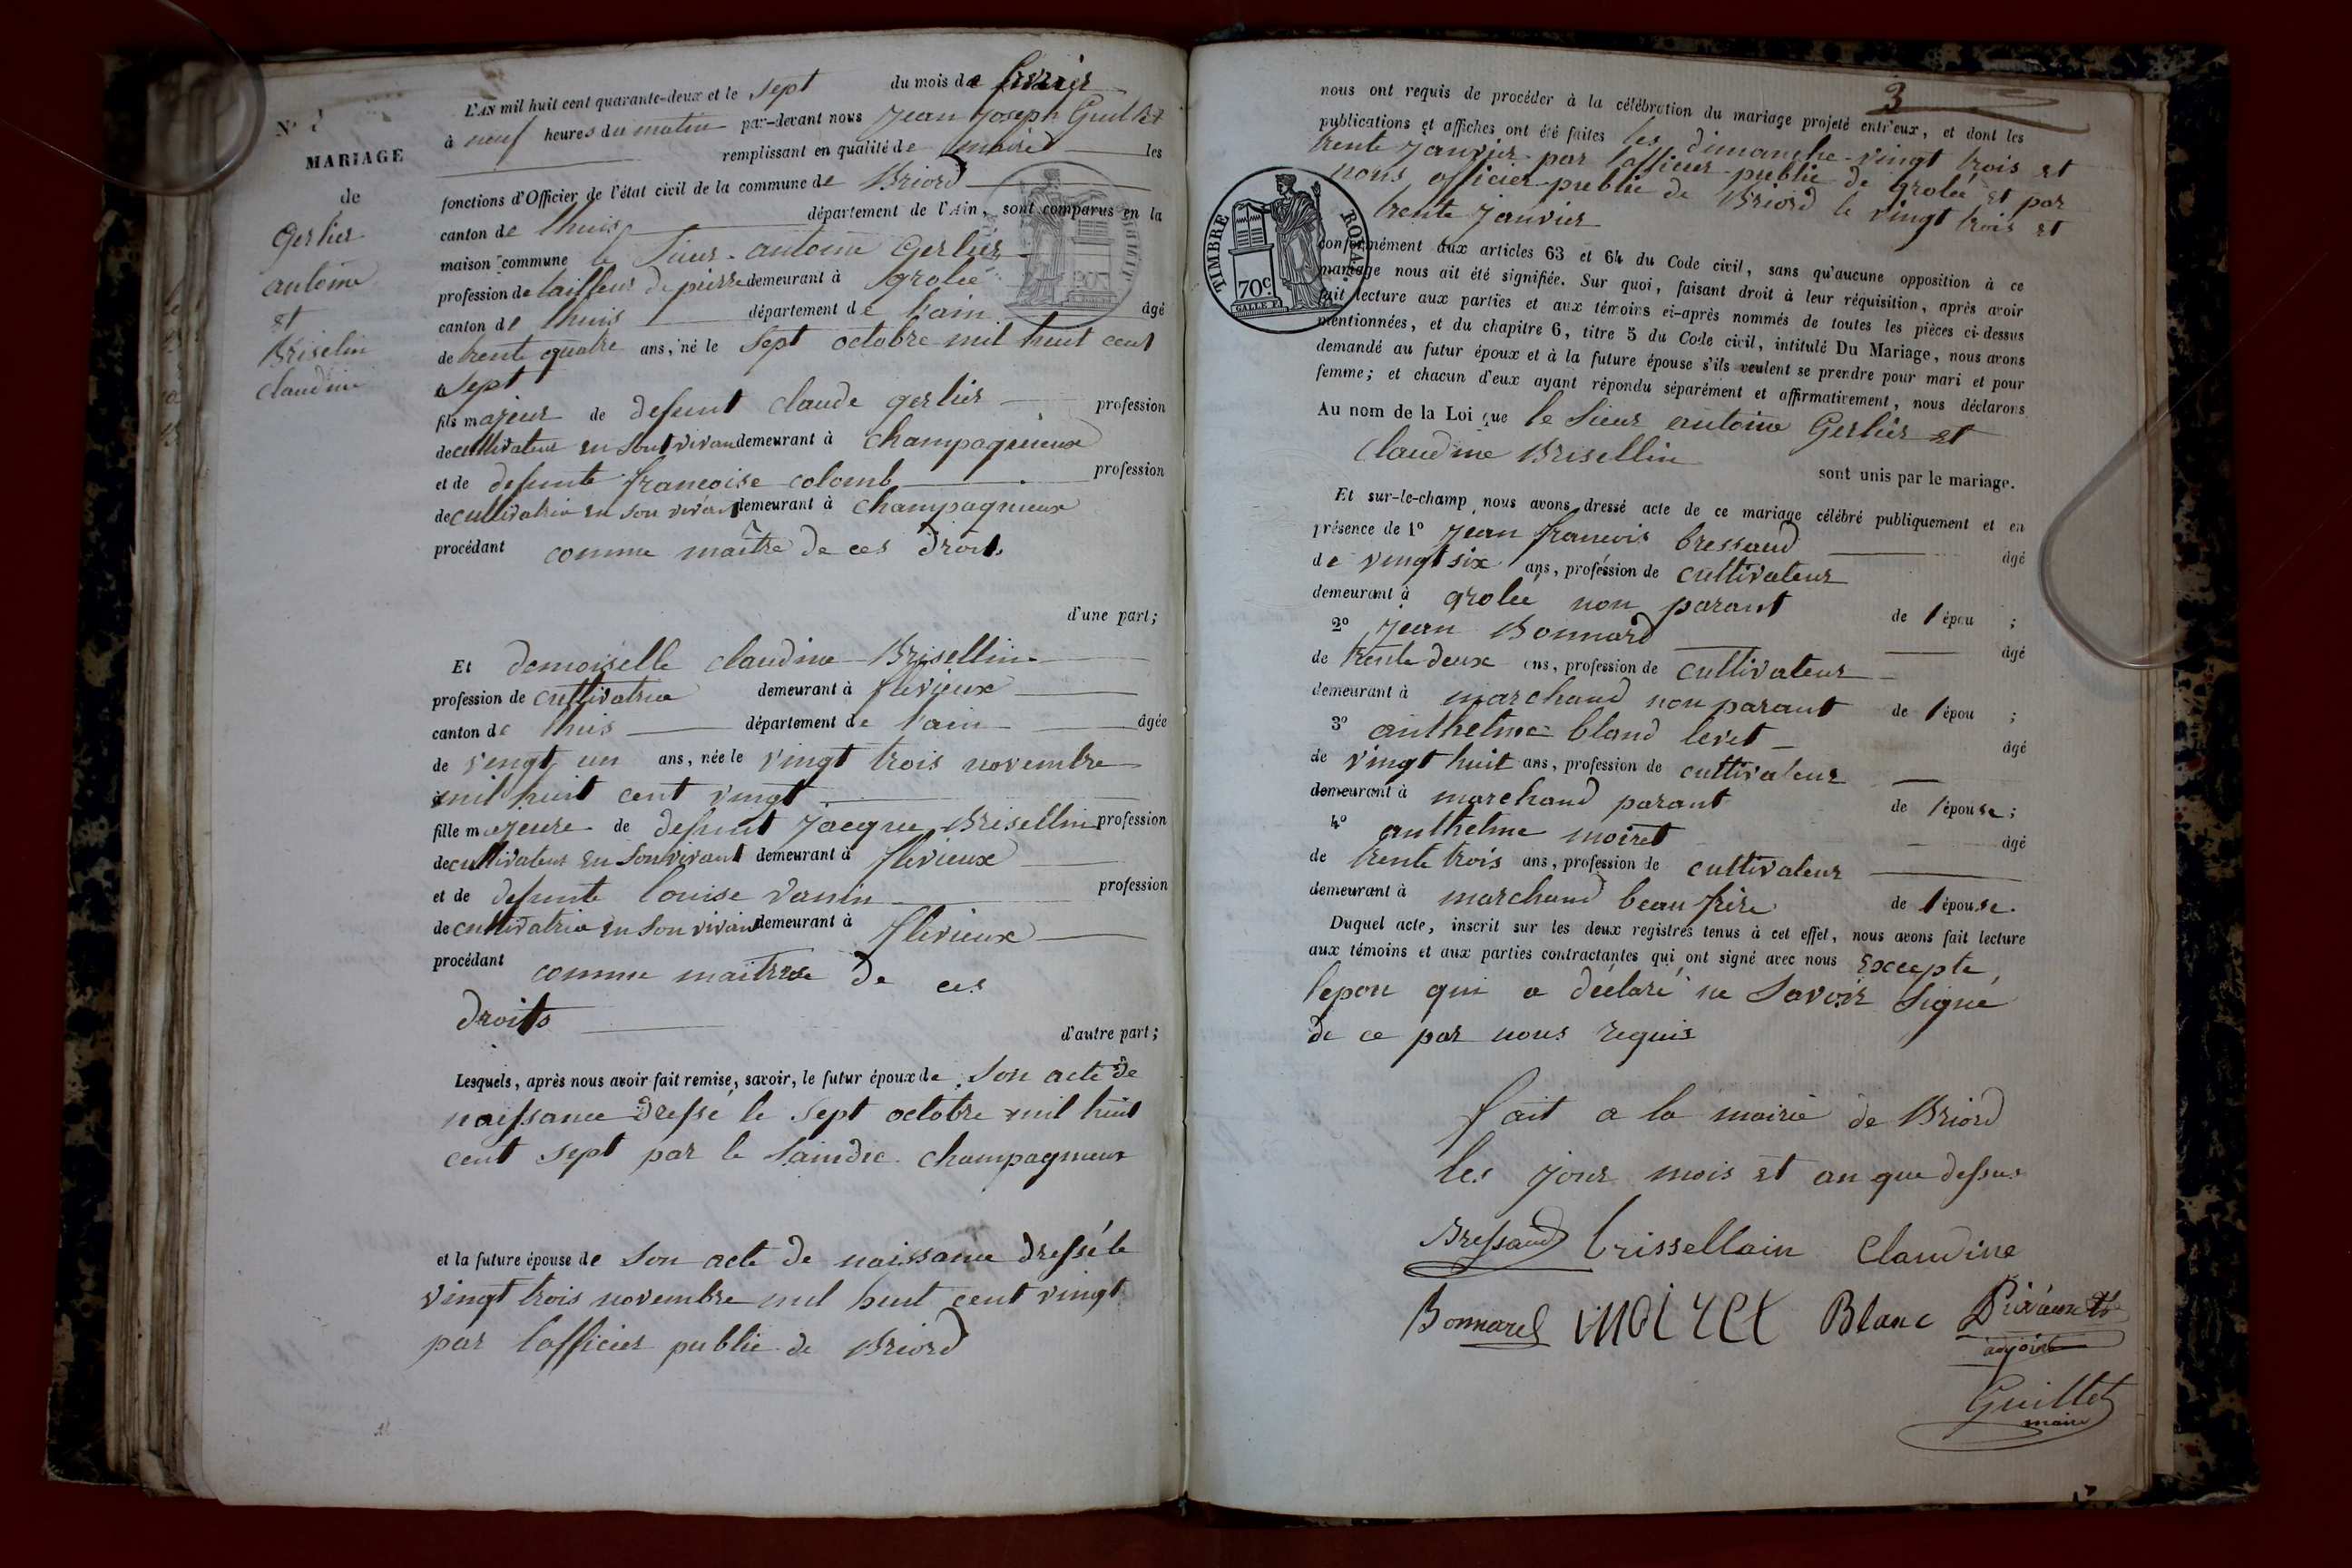 N°
MARIAGE
de
Gerlier
antoine
et
Briselin
Claudine
L'AN mil huit cent quarante-deux et le sept du mois de fevrier
à neuf heures du matin par-devant nous Jean Joseph Guillet
remplissant en qualité de maire les
fonctions d'Officier de l'état civil de la commune de Briord
canton de lhuis département de l'Ain, sont comparus en la
maison commune le Sieur antoine Gerlier
profession de tailleur de pierre demeurant à grolée
canton de lhuis département de lain âgé
de trente quatre ans, né le sept octobre mil huit cent
sept
fils majeur de defunt claude gerlier profession
de cultivateur en sont vivan demeurant à champagneux
et de defunte francoise colomb profession
de cultivatrice en son vivan demeurant à champagneux
procédant comme maître de ces droits
d'une part;
Et demoiselle claudine Brisellin
profession de cultivatrice demeurant à flevieux
canton de lhuis département de l'ain âgée
de vingt un ans, née le vingt trois novembre
mil huit cent vingt
fille majeure de defunt Jacque Brisellin profession
de cultivateur en son vivant demeurant à flevieux
et de defunte louise vanin profession
de cultivatrice en son vivan demeurant à flevieux
procédant comme maitresse de ces
droits
d'autre part;
Lesquels, après nous avoir fait remise, savoir, le futur époux de son acte de
naissance dressé le sept octobre mil huit
cent sept par le saindic champagneux
et la future épouse de son acte de naissance dressé le
vingt trois novembre mil huit cent vingt
par lofficier public de Briord
3
nous ont requis de procéder à la célébration du mariage projeté entr'eux, et dont les
publications et affiches ont été faites les dimanche vingt trois et
trente janvier par lofficier public de grolée et par
nous officier public de Briord le vingt trois et
trente janvier
TIMBRE ROYAL
70c
GALLE F.
conformément aux articles 63 et 64 du Code civil, sans qu'aucune opposition à ce
mariage nous ait été signifiée. Sur quoi, faisant droit à leur réquisition, après avoir
fait lecture aux parties et aux témoins ci-après nommés de toutes les pièces ci-dessus
mentionnées, et du chapitre 6, titre 5 du Code civil, intitulé Du Mariage, nous avons
demandé au futur époux et à la future épouse s'ils veulent se prendre pour mari et pour
femme; et chacun d'eux ayant répondu séparément et affirmativement, nous déclarons
Au nom de la Loi que le Sieur antoine Gerlier et
Claudine Brisellin
sont unis par le mariage.
Et sur-le-champ nous avons dressé acte de ce mariage célébré publiquement et en
présence de 1° Jean francois bressaud âgé
de vingt six ans, profession de cultivateur
demeurant à grolée non parant de l épou ;
2° Jean Bonnard âgé
de trente deux ans, profession de cultivateur
demeurant à marchand non parant de l épou ;
3° anthelme bland levet âgé
de vingt huit ans, profession de cultivateur
demeurant à marchand parant de l épouse;
4° anthelme moiret âgé
de trente trois ans, profession de cultivateur
demeurant à marchand beau frère de l épouse.
Duquel acte, inscrit sur les deux registres tenus à cet effet, nous avons fait lecture
aux témoins et aux parties contractantes qui ont signé avec nous Excepte
lepou qui a déclaré ne savoir signé
de ce par nous requis
fait a la mairie de Briord
les jour mois et an que dessus
Bressaud brissellain Claudine
Bonnard MOiret Blanc
adjoint
Guillet
maire